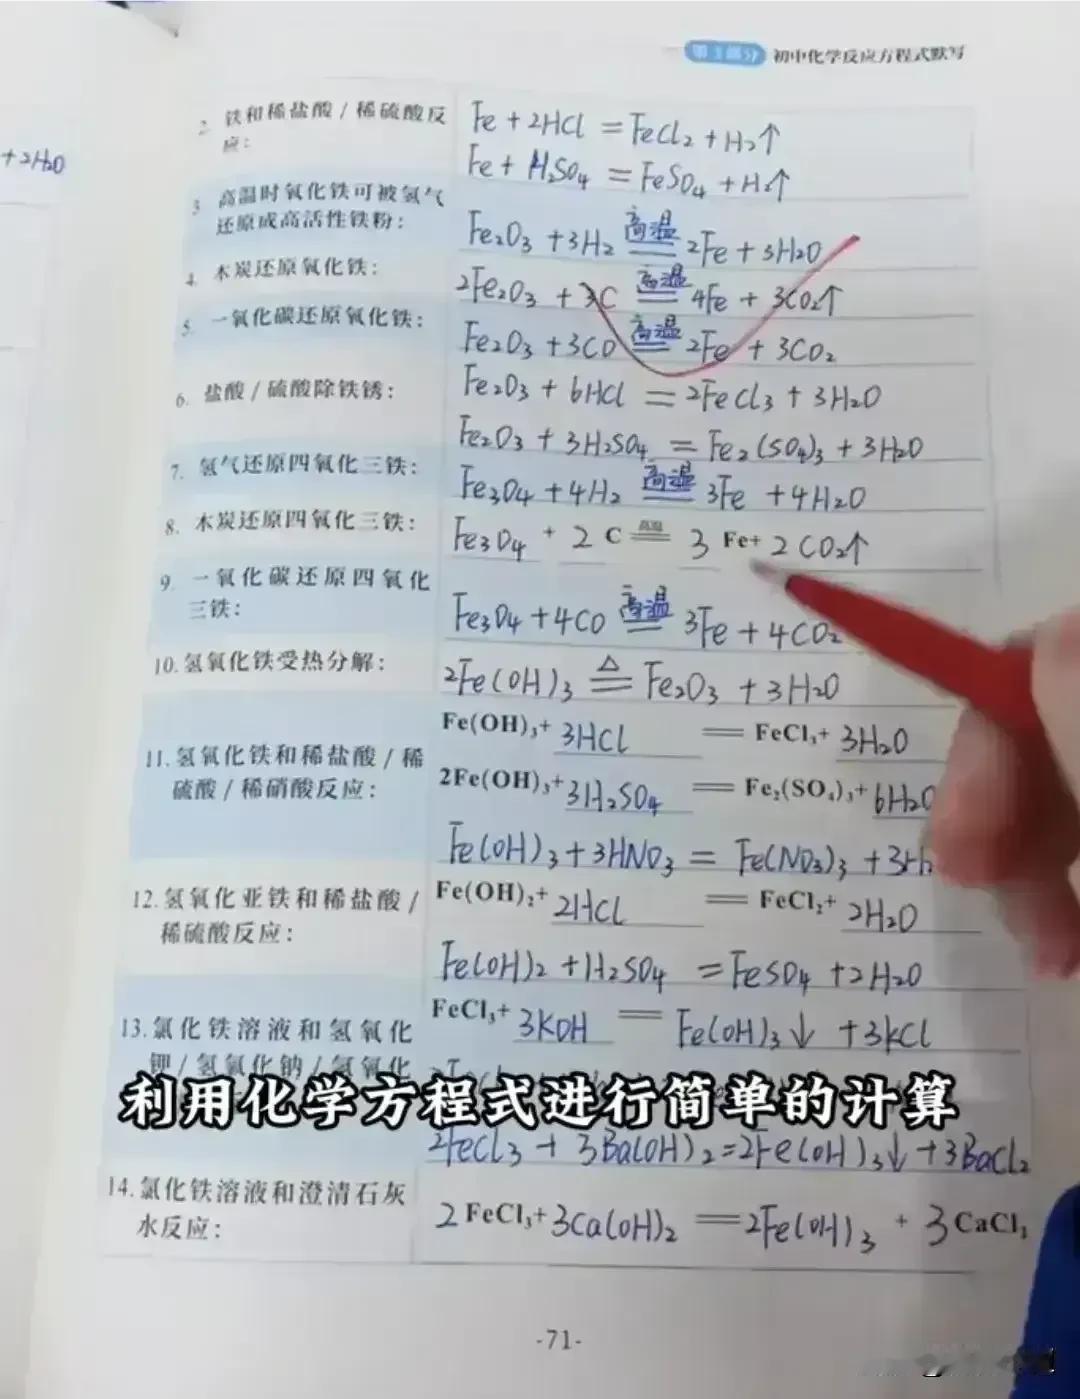 第3部分 初中化学反应方程式默写
+2H₂O
2. 铁和稀盐酸/稀硫酸反应:
Fe+2HCl=FeCl₂+H₂↑
Fe+H₂SO₄=FeSO₄+H₂↑
3. 高温时氧化铁可被氢气还原成高活性铁粉:
Fe₂O₃+3H₂ 高温 2Fe+3H₂O
4. 木炭还原氧化铁:
2Fe₂O₃+3C 高温 4Fe+3CO₂↑
5. 一氧化碳还原氧化铁:
Fe₂O₃+3CO 高温 2Fe+3CO₂
6. 盐酸/硫酸除铁锈:
Fe₂O₃+6HCl=2FeCl₃+3H₂O
Fe₂O₃+3H₂SO₄=Fe₂(SO₄)₃+3H₂O
7. 氢气还原四氧化三铁:
Fe₃O₄+4H₂ 高温 3Fe+4H₂O
8. 木炭还原四氧化三铁:
Fe₃O₄+2C 高温 3Fe+2CO₂↑
9. 一氧化碳还原四氧化三铁:
Fe₃O₄+4CO 高温 3Fe+4CO₂
10. 氢氧化铁受热分解:
2Fe(OH)₃ △ Fe₂O₃+3H₂O
11. 氢氧化铁和稀盐酸/稀硫酸/稀硝酸反应:
Fe(OH)₃+3HCl=FeCl₃+3H₂O
2Fe(OH)₃+3H₂SO₄=Fe₂(SO₄)₃+6H₂O
Fe(OH)₃+3HNO₃=Fe(NO₃)₃+3H
12. 氢氧化亚铁和稀盐酸/稀硫酸反应:
Fe(OH)₂+2HCl=FeCl₂+2H₂O
Fe(OH)₂+H₂SO₄=FeSO₄+2H₂O
13. 氯化铁溶液和氢氧化钾/氢氧化钠/氢氧化
FeCl₃+3KOH=Fe(OH)₃↓+3KCl
利用化学方程式进行简单的计算
2FeCl₃+3Ba(OH)₂=2Fe(OH)₃↓+3BaCl₂
14. 氯化铁溶液和澄清石灰水反应:
2FeCl₃+3Ca(OH)₂=2Fe(OH)₃+3CaCl₂
-71-